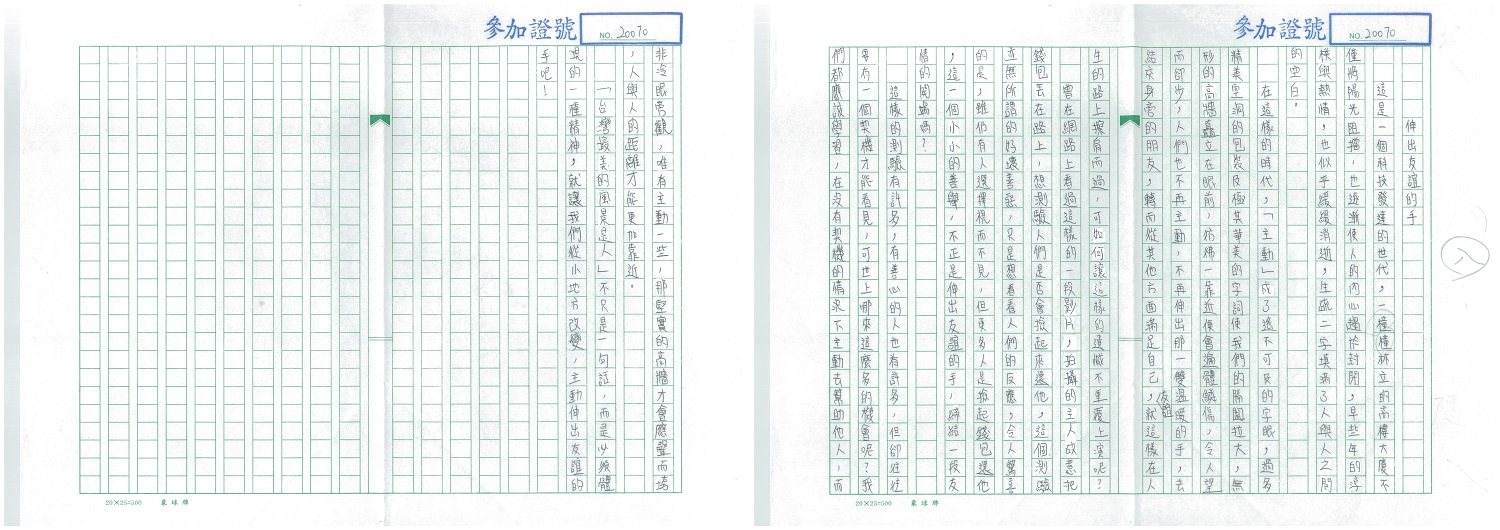 參加證號 NO. 20070
伸出友誼的手
這是一個科技發達的世代,一幢幢林立的高樓大廈不
僅將陽光阻擋,也逐漸使人的內心趨於封閉,早些年的淳
樸與熱情,也似乎緩緩消逝,生疏二字填滿了人與人之間
的空白。
在這樣的時代,「主動」成了遙不可及的字眼,過多
精美空洞的包裝及極其華美的字詞使我們的隔閡拉大,無
形的高牆矗立在眼前,彷彿一靠近便會遍體鱗傷,令人望
而卻步,人們也不再主動,不再伸出那一雙友誼溫暖的手,去
結交身旁的朋友,轉而從其他方面滿足自己,就這樣在人
生的路上擦肩而過,可如何讓這樣的遺憾不重覆上演呢?
曾在網路上看過這樣的一段影片,拍攝的主人故意把
錢包丟在路上,想測驗人們是否會撿起來還他,這個測驗
並無所謂的好壞善惡,只是想看看人們的反應,令人驚喜
的是,雖仍有人選擇視而不見,但更多人是撿起錢包還他
,這一個小小的善舉,不正是伸出友誼的手,締結一段友
情的開端嗎?
這樣的測驗有許多,有善心的人也有許多,但卻往往
要有一個契機才能看見,可世上哪來這麼多的機會呢?我
們都應該學習,在沒有契機的情況下主動去幫助他人,而
20×25=500 東球牌
八
參加證號 NO. 20070
非冷眼旁觀,唯有主動一些,那堅實的高牆才會應聲而垮
,人與人的距離才能更加靠近。
「台灣最美的風景是人」不只是一句話,而是必須體
現的一種精神,就讓我們從小地方改變,主動伸出友誼的
手吧!
20×25=500 東球牌